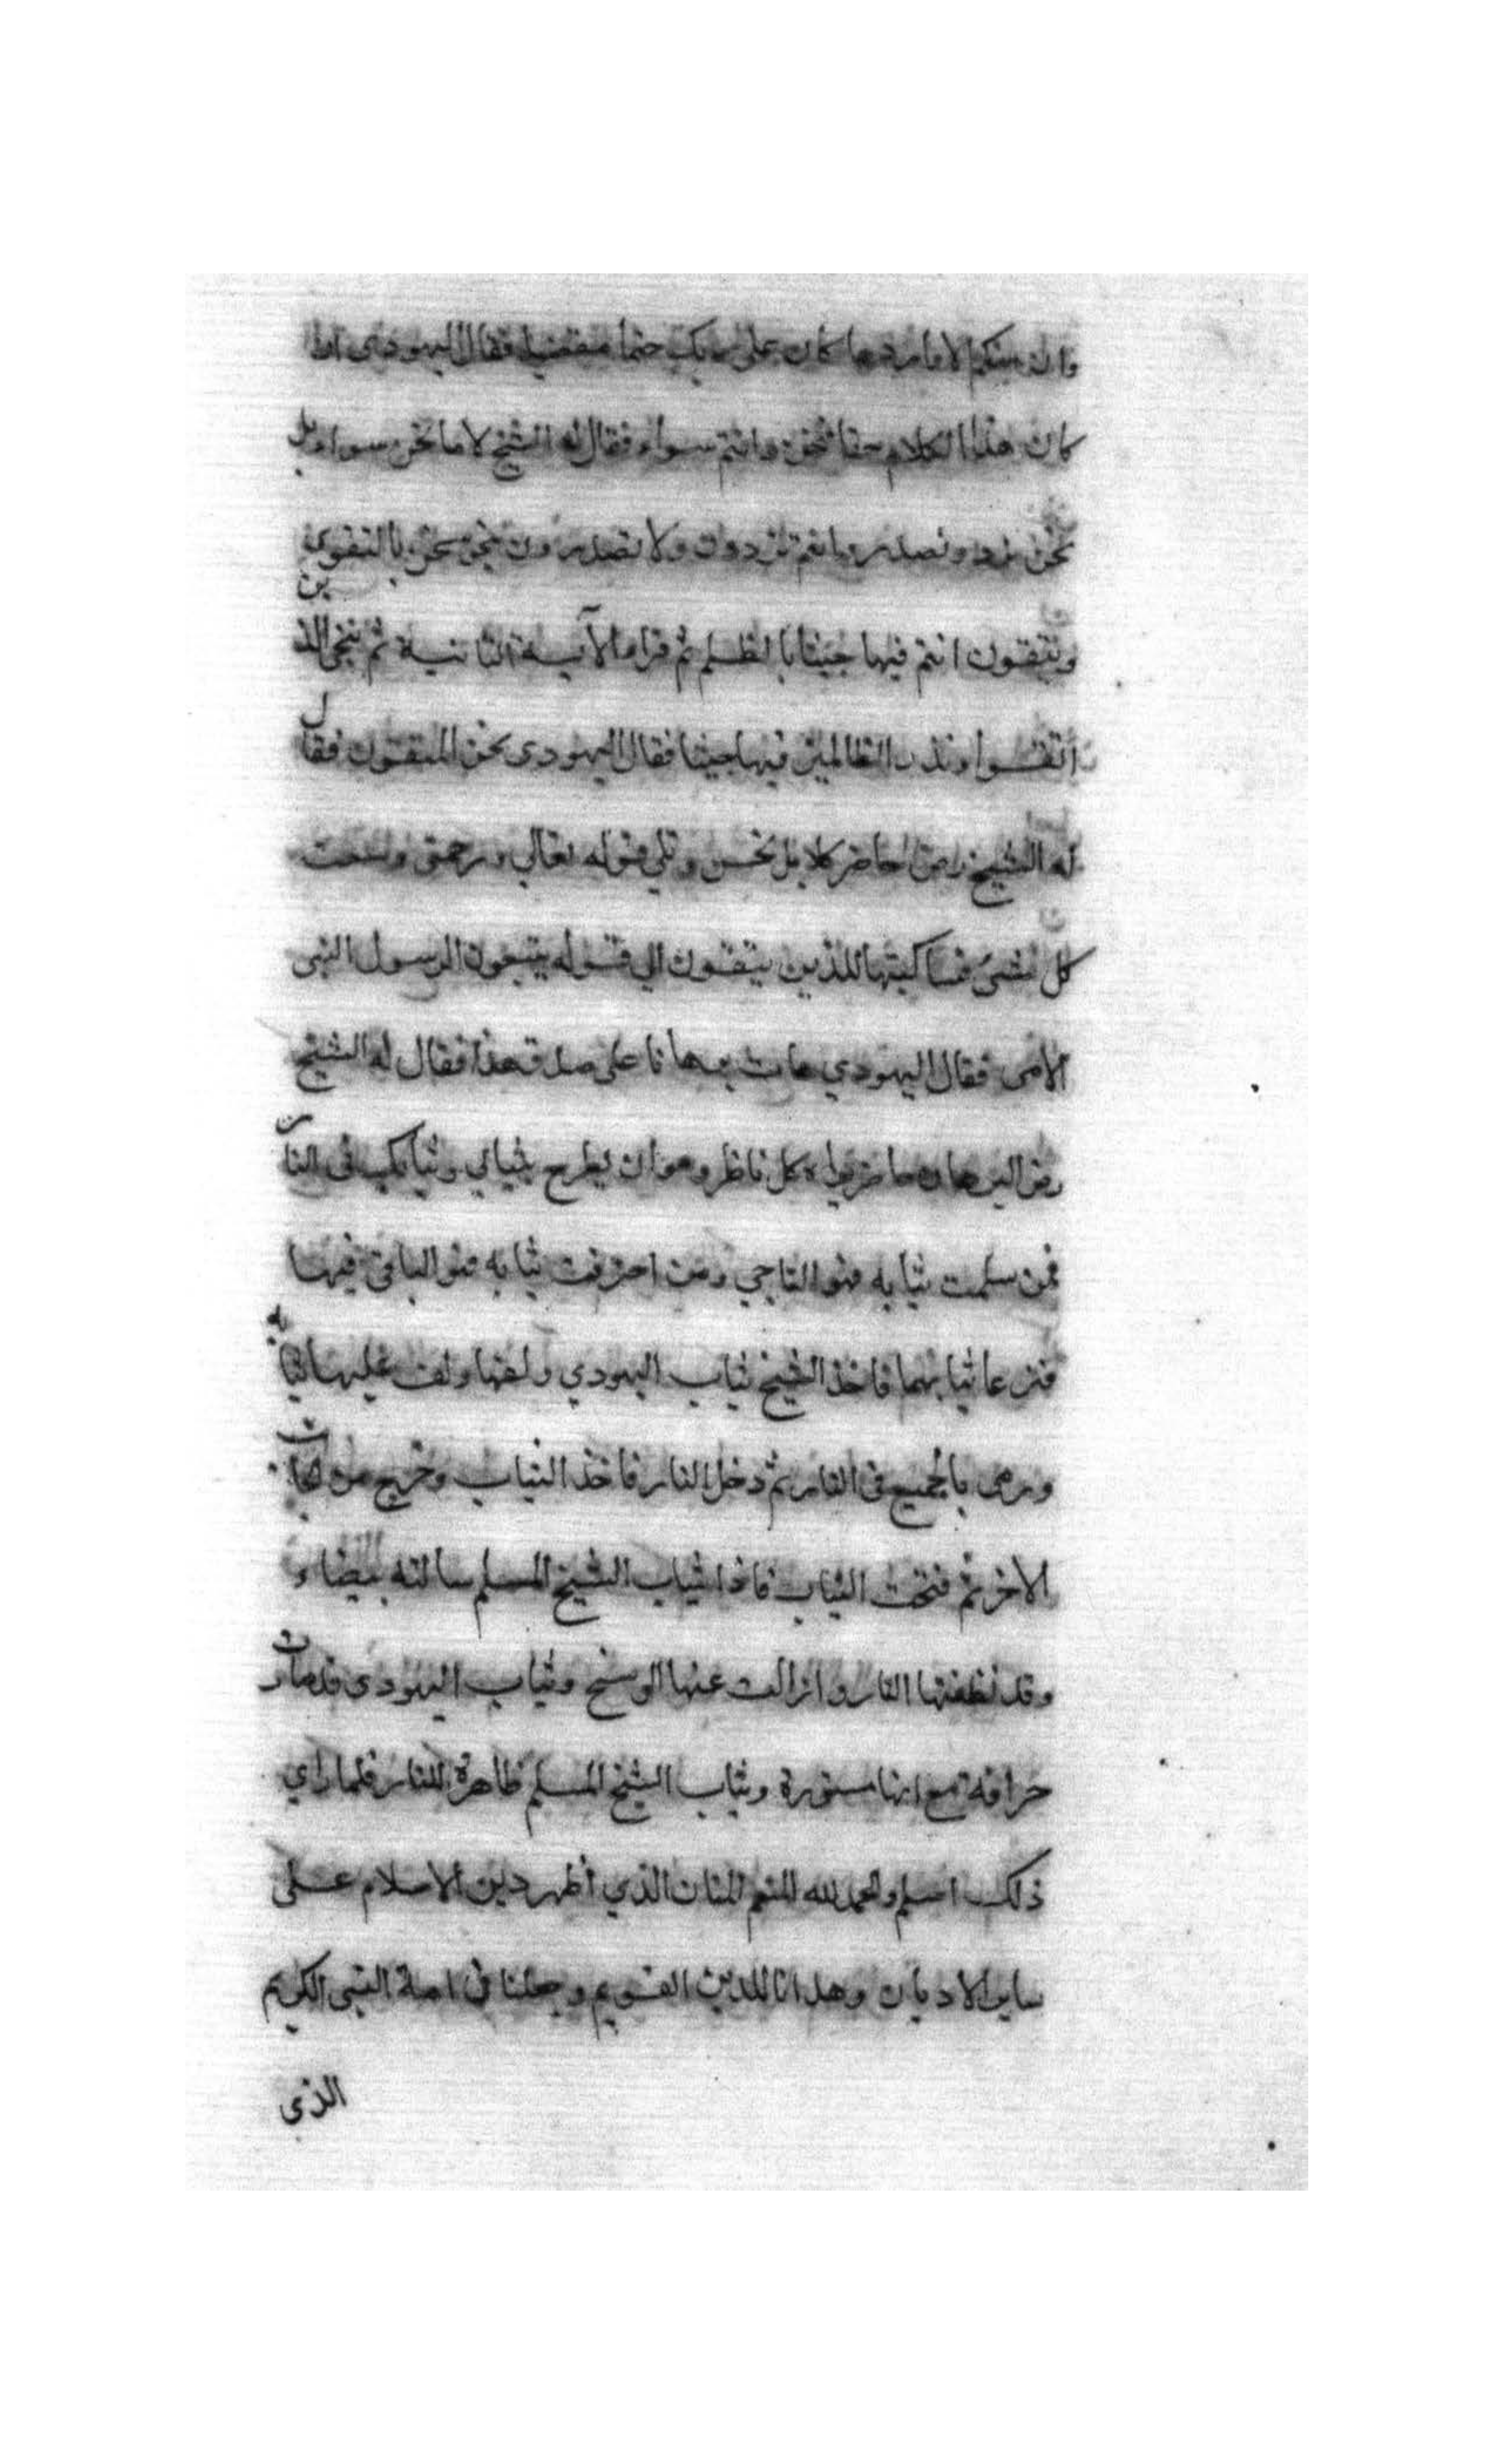 وان منكم الا واردها كان على ربك حتما مقضيا فقال اليهودى اذا
كان هذا الكلام حقا فنحن وانتم سواء فقال له الشيخ لا ما نحن سواء بل
نحن نرد ونصدر وانتم تردون ولا تصدرون ننجو نحن بالتقوى
وتبقون انتم فيها جيثا بالظلم ثم قراء الآية الثانية ثم ننجى الذين
اتقوا ونذر الظالمين فيها جيثا فقال اليهودى نحن المتقون فقال
له الشيخ كلا بل نحن وتلى قوله تعالى ورحمتى وسعت
كل شىء فساكتبها للذين يتقون الى قوله يتبعون الرسول النبى
الامى فقال اليهودي هات برهانا على صدق هذا فقال له الشيخ
البرهان حاضر يراه كل ناظر وهو ان يطرح ثيابي وثيابك فى النار
فمن سلمت ثيابه فهو الناجي ومن احترقت ثيابه فهو الباقى فيها
فنزعا ثيابهما فاخذ الشيخ ثياب اليهودي ولفها ولف عليها ثيابه
ورمى بالجميع فى النار ثم دخل النار فاخذ الثياب وخرج من الجانب
الاخر ثم فتحت الثياب فاذا ثياب الشيخ المسلم سالمة بيضاء
وقد نظفتها النار وازالت عنها الوسخ وثياب اليهودى قد صارت
حراقة مع انها مستورة وثياب الشيخ المسلم ظاهرة للنار فلما راي
ذلك اسلم والحمد لله المنعم المنان الذي أظهر دين الاسلام على
ساير الاديان وهدانا للدين القويم وجعلنا فى امة النبى الكريم
الذى